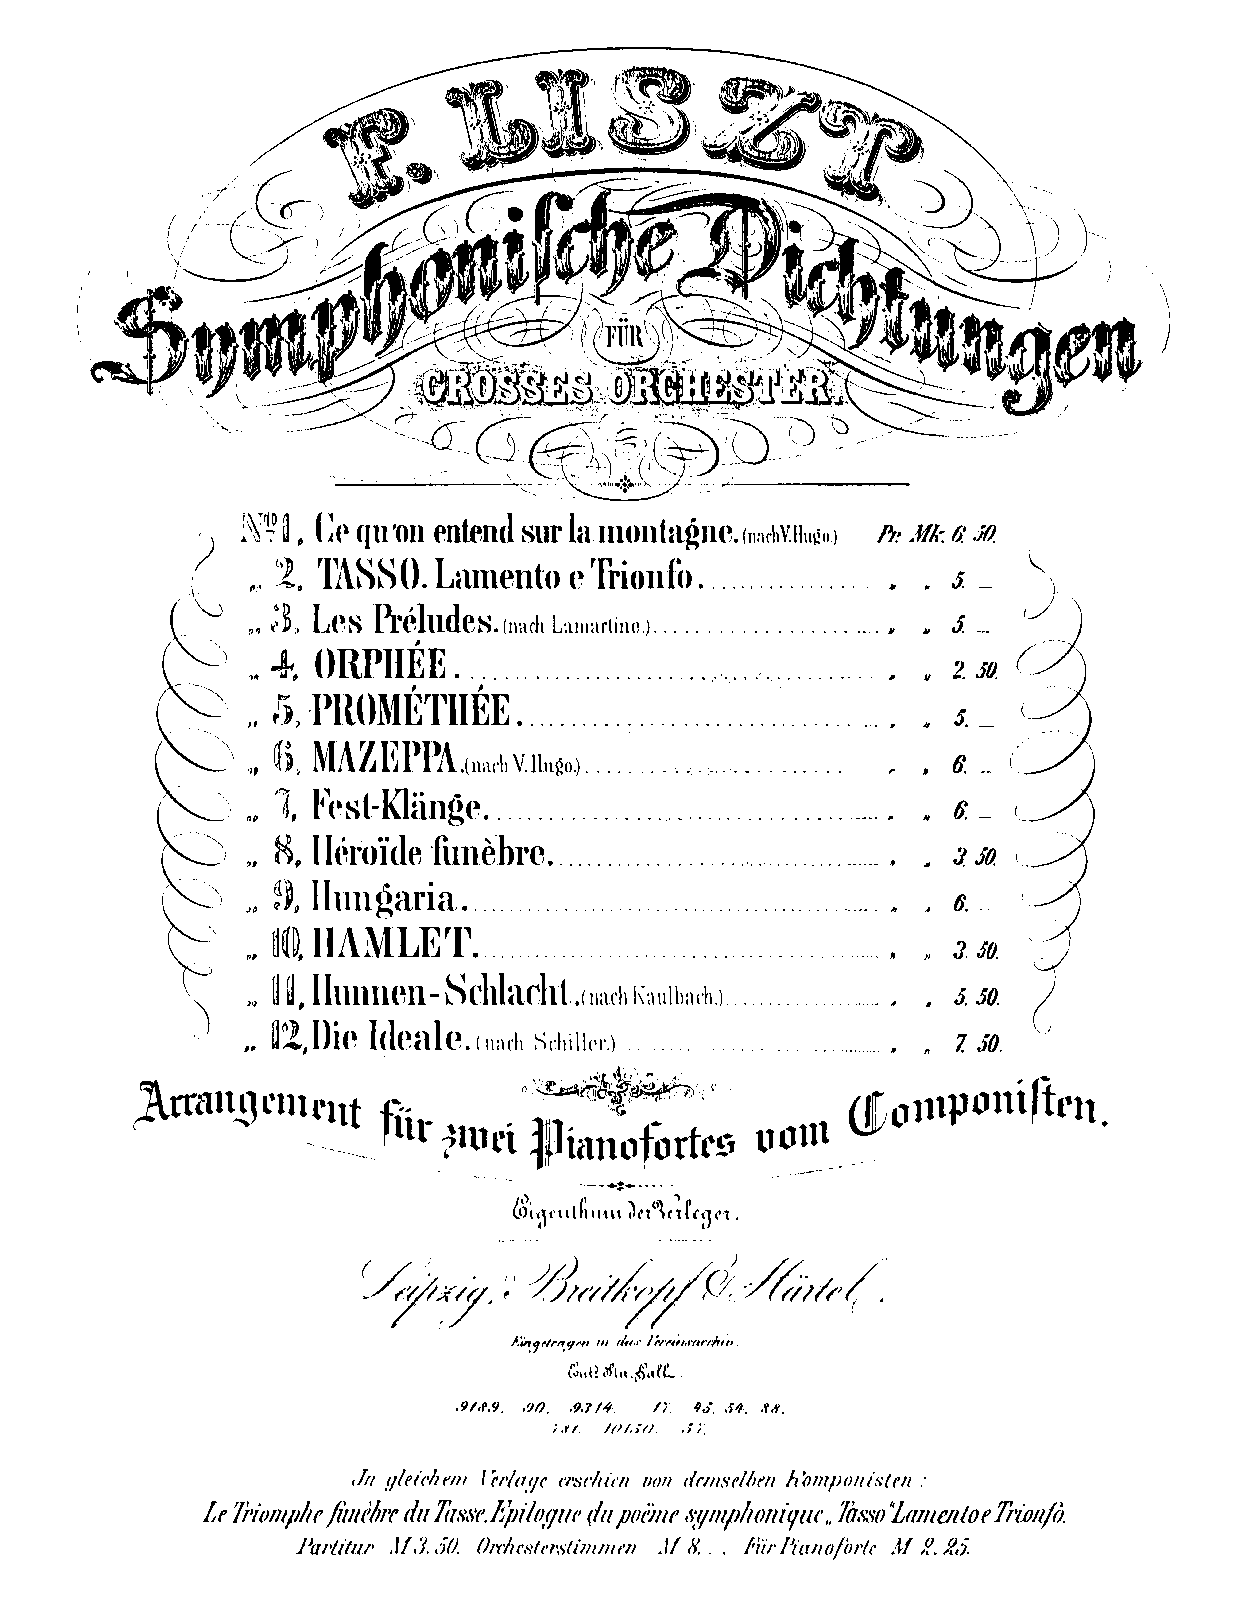 F. LISZT
Symphonische Dichtungen
FÜR
GROSSES ORCHESTER.
No. 1, Ce qu'on entend sur la montagne. (nach V. Hugo.) Pr. Mk. 6. 50.
„ 2, TASSO. Lamento e Trionfo. „ „ 5. —
„ 3, Les Préludes. (nach Lamartine.) „ „ 5. —
„ 4, ORPHÉE. „ „ 2. 50.
„ 5, PROMÉTHÉE. „ „ 5. —
„ 6, MAZEPPA. (nach V. Hugo.) „ „ 6. —
„ 7, Fest-Klänge. „ „ 6. —
„ 8, Héroïde funèbre. „ „ 3. 50.
„ 9, Hungaria. „ „ 6. —
„ 10, HAMLET. „ „ 3. 50.
„ 11, Hunnen-Schlacht. (nach Kaulbach.) „ „ 5. 50.
„ 12, Die Ideale. (nach Schiller.) „ „ 7. 50.
Arrangement für zwei Pianofortes vom Componisten.
Eigenthum der Verleger.
Leipzig, Breitkopf & Härtel.
Eingetragen in das Vereinsarchiv.
Entd. Sta. Hall.
9189. 90. 9314. 17. 45. 54. 88.
10150. 57.
In gleichem Verlage erschien von demselben Komponisten:
Le Triomphe funèbre du Tasse. Epilogue du poëme symphonique „Tasso“ Lamento e Trionfo.
Partitur M 3. 50. Orchesterstimmen M 8. . . Für Pianoforte M 2. 25.